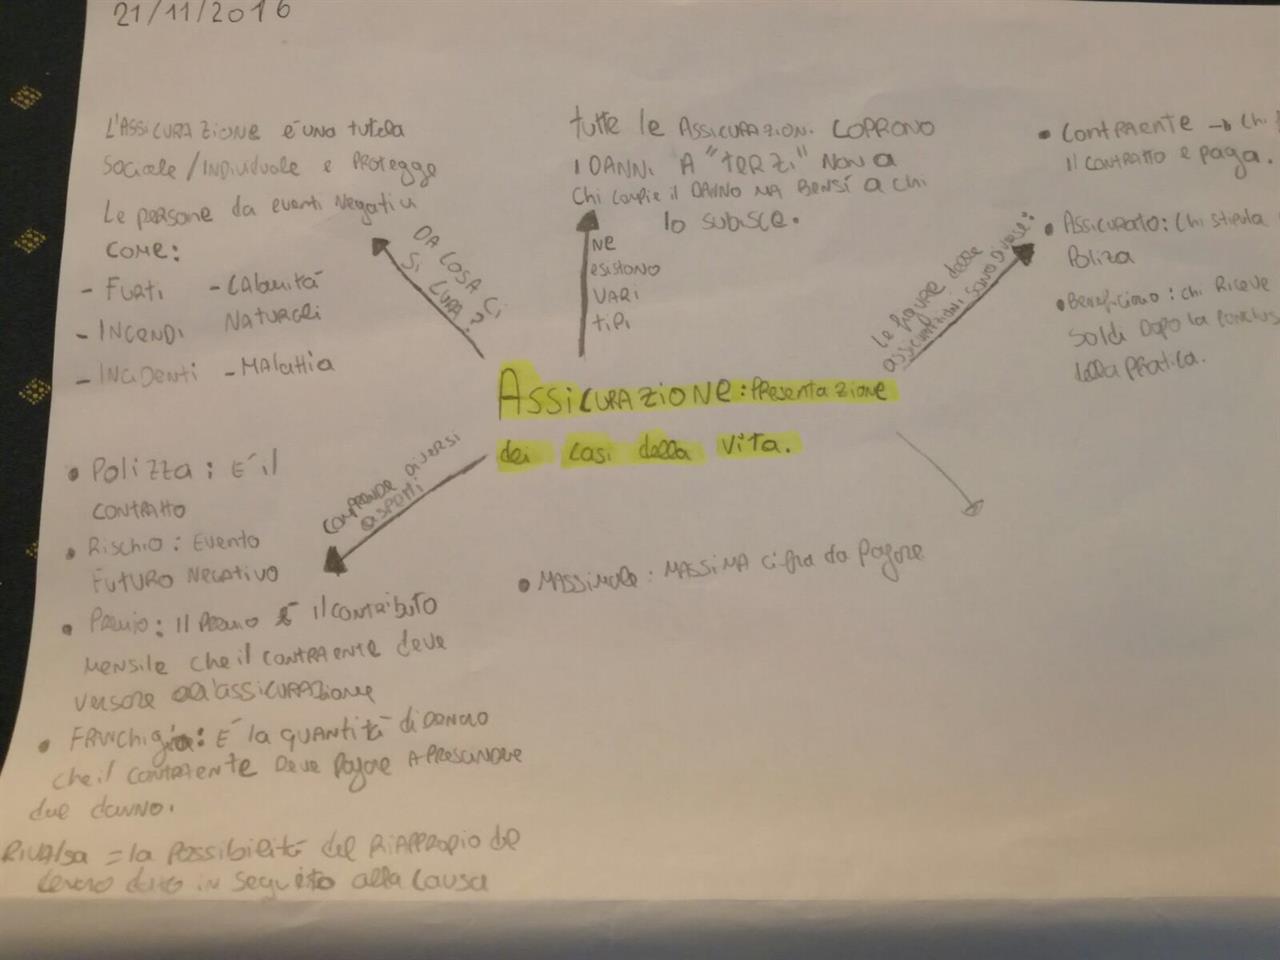 21/11/2016
L'ASSICURAZIONE é UNA tutela
SOCIALE/INDIVIDUALE e PROTEGGE
Le PERSONE da eventi Negativi
COME:
- FURTI - CALAMITÁ
NATURALI
- INCENDI
- INCIDENTI - MALATTIA
DA COSA CI
SI CURA?
tutte le ASSICURAZIONI COPRONO
I DANNI A "TERZI" NON A
Chi compie il DANNO MA BENSÍ a chi
lo subisce.
NE
esistono
VARI
tipi
• CONTRAENTE → Chi
Il CONTRATTO e paga.
• ASSICURATO: Chi stipula
Poliza
• Beneficiario: chi Riceve
soldi dopo la conclus
della pratica.
Le figure delle
assicurazioni sono diverse:
ASSICURAZIONE: PRESENTAZIONE
dei casi della vita.
COMPRENDE DIVERSI
ASPETTI
• POLIZZA: É il
CONTRATTO
• RISCHIO: EVENTO
FUTURO NEGATIVO
• PREMIO: Il PREMIO É il CONTRIBUTO
MENSILE che il CONTRAENTE deve
versare all'ASSICURAZIONE
• FRANCHIGIA: É la QUANTITÁ di DENARO
che il CONTRAENTE Deve pagare A PRESCINDERE
dal danno.
RIVALSA = la POSSIBILITÁ del RIAPPROPIO del
denaro dato in seguito alla causa
• MASSIMALE: MASSIMA cifra da pagare